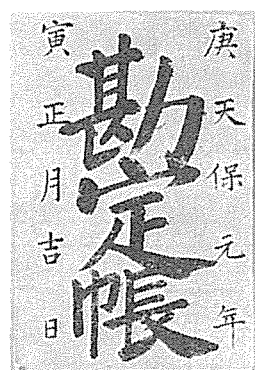 庚天保元年
勘定帳
寅正月吉日